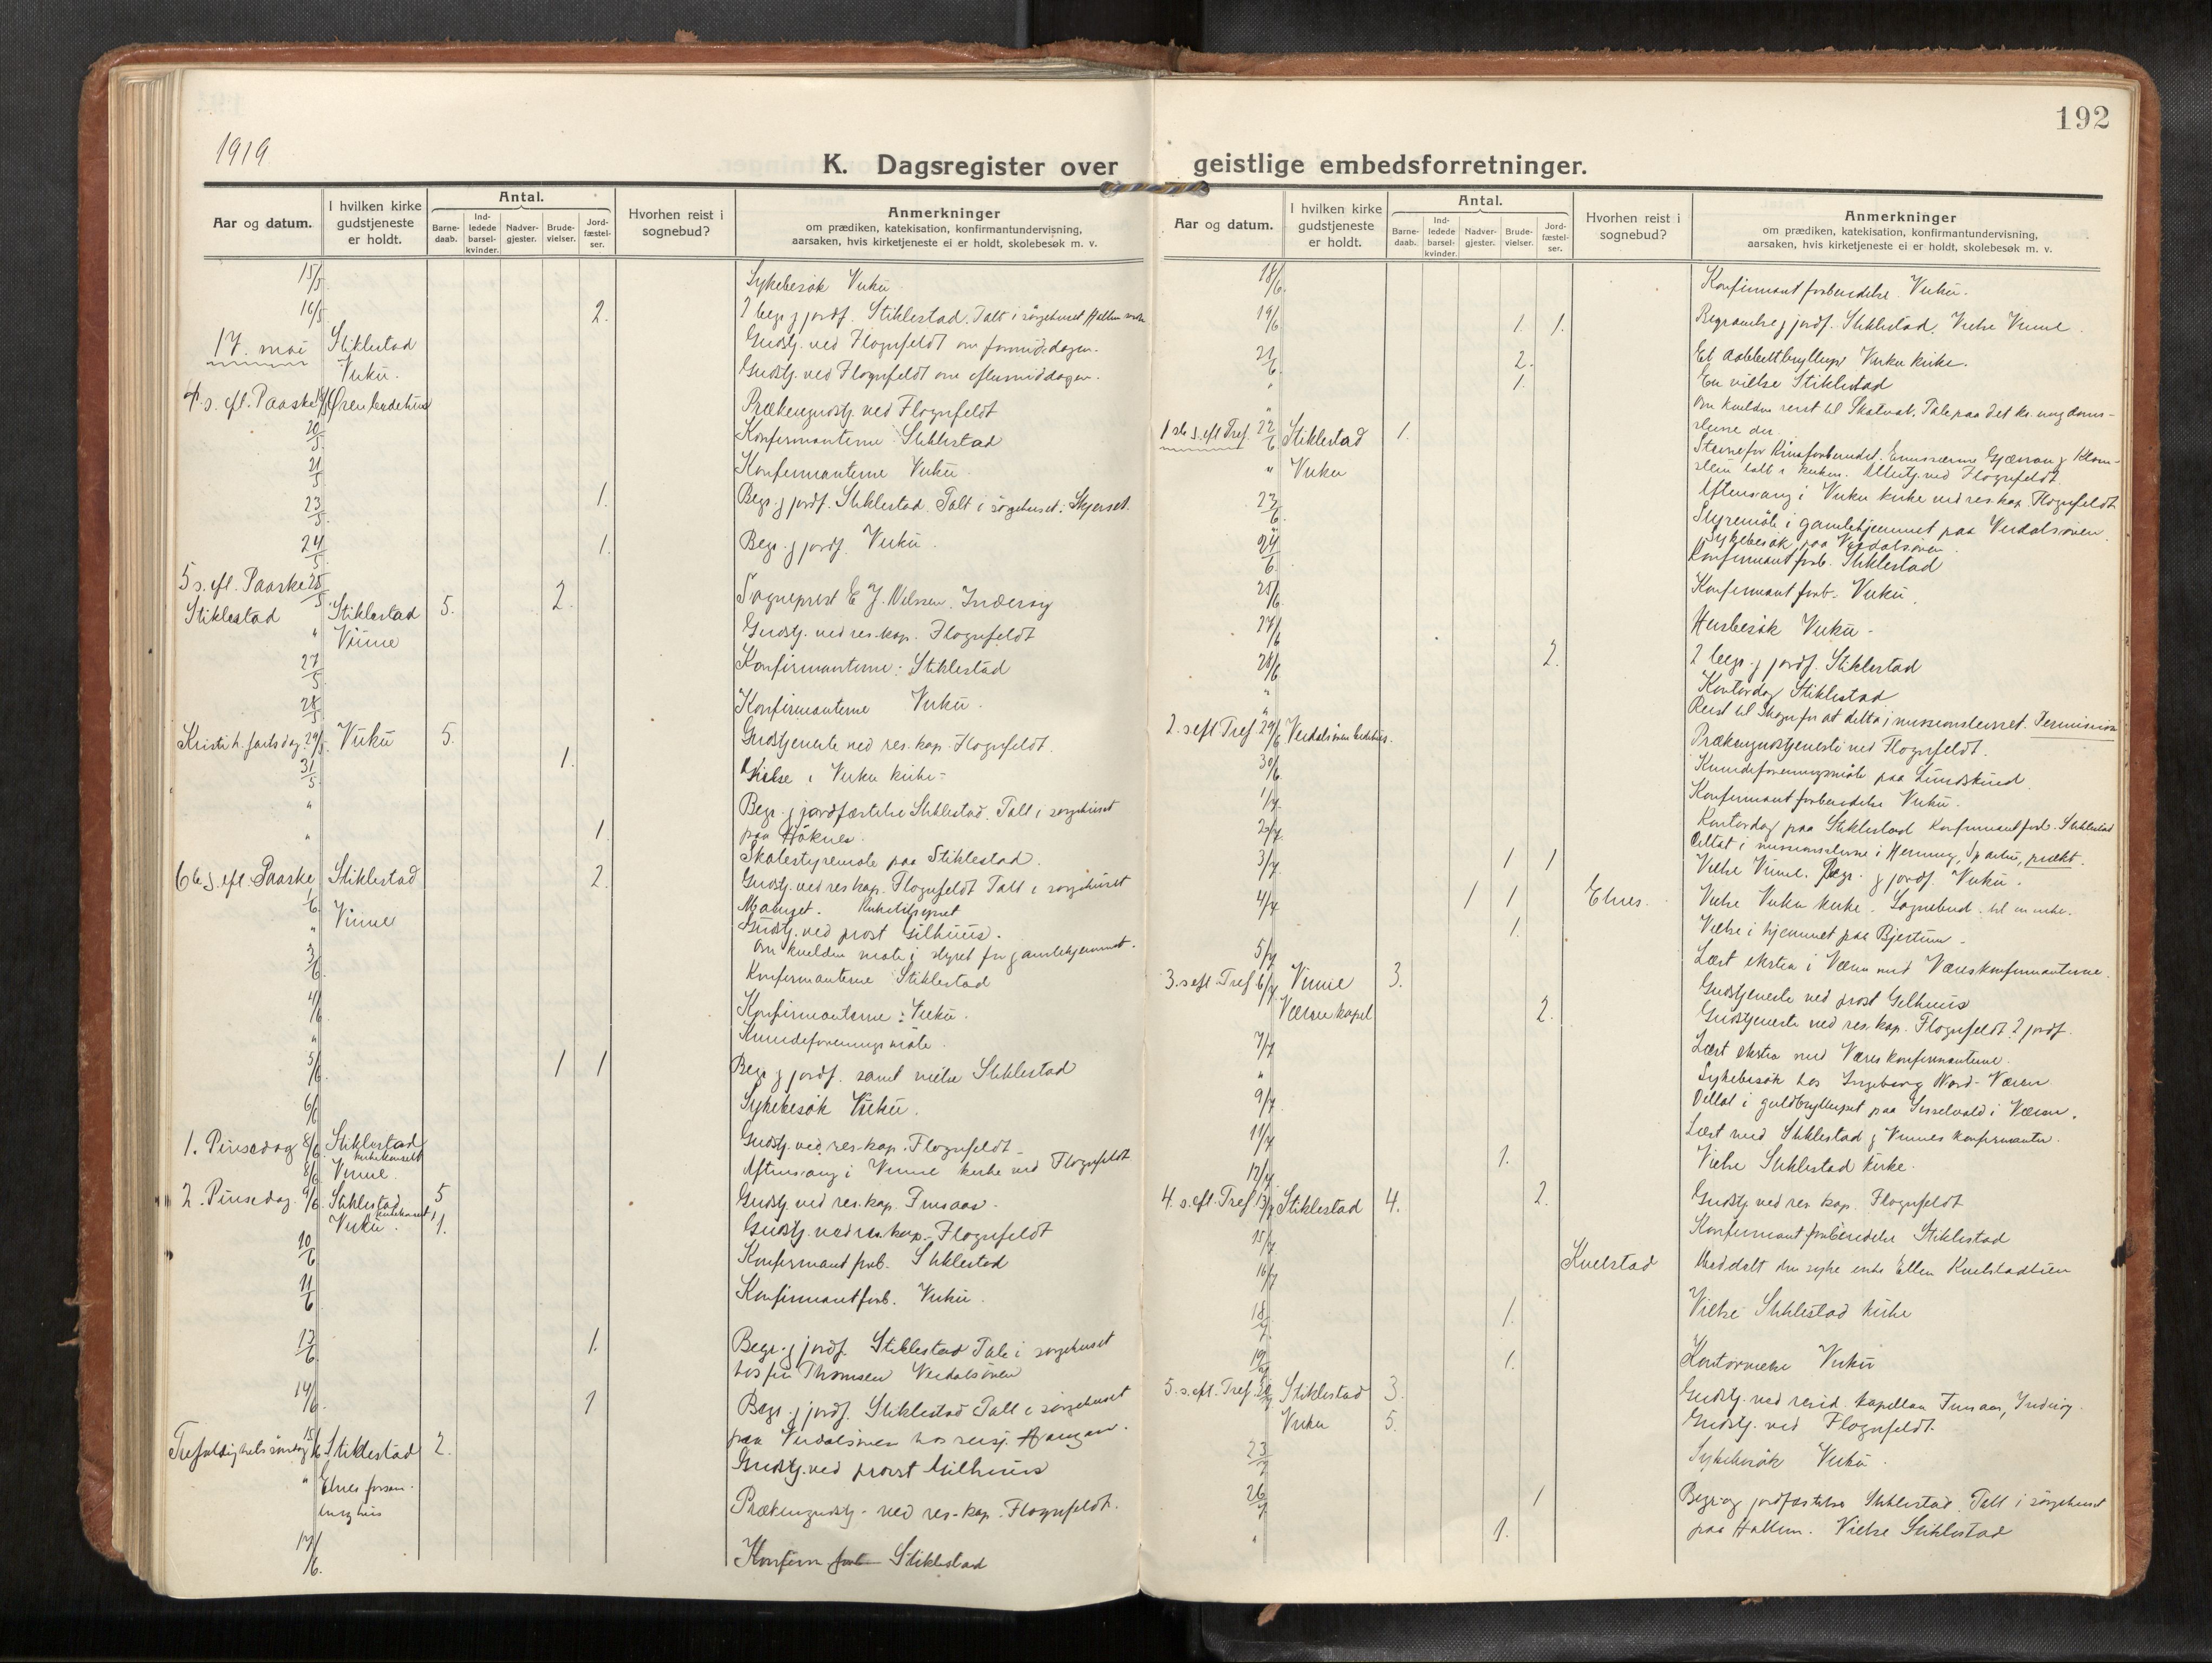 192
1919
K. Dagsregister over geistlige embedsforretninger.
Aar og datum.
I hvilken kirke gudstjeneste er holdt.
Antal.
Barne-daab.
Ind-ledede barsel-kvinder.
Nadver-gjester.
Brude-vielser.
Jord-fæstel-ser.
Hvorhen reist i sognebud?
Anmerkninger
om prædiken, katekisation, konfirmantundervisning,
aarsaken, hvis kirketjeneste ei er holdt, skolebesøk m. v.
15/5 Sykebesøk Vuku
16/5 2. 2 begr. g jordf. Stiklestad. Talt i sørgehuset Hallem
17. mai Stiklestad Gudstj. ved Flognfeldt om formiddagen.
Vuku. Gudstj. ved Flognfeldt om eftermiddagen.
4. s. eft. Paaske Ørens bedehus Prækengudstj. ved Flognfeldt
20/5 Konfirmanterne Stiklestad
21/5 Konfirmanterne Vuku
23/5 1. Begr. g jordf. Stiklestad. Talt i sørgehuset.
24/5 1. Begr. g jordf. Vuku.
5 s. eft. Paaske 25/5
Stiklestad Stiklestad 5. 2. Sogneprest E J. Nilssen. Inderøy
" Vinne Gudstj. ved res. kap. Flognfeldt
27/5 Konfirmanterne: Stiklestad
28/5 Konfirmanterne Vuku.
Kristi h. fartsdag 29/5 Vuku 5. Gudstjeneste ved res. kap. Flognfeldt.
31/5 1. Vielse i Vuku kirke-
" Begr. g jordfæstelse Stiklestad. Talt i sørgehuset
" 1. paa
Skolestyremøte paa Stiklestad.
6te s. eft. Paaske Stiklestad 2. Gudstj. ved res kap. Flognfeldt Talt i sørgehuset
1/6 Kirketilsynet
" Vinne Gudstj. ved prost Gilhuus.
3/6 Om kvelden møte i styret for gamlehjemmet.
Konfirmanterne Stiklestad
4/6 Konfirmanterne: Vuku.
" Kvindeforenings møte.
5/6 1 1 Begr. g jordf. samt vielse Stiklestad
6/6 Sykebesøk Vuku.
1. Pinsedag 8/6 Stiklestad Gudstj. ved res. kap. Flognfeldt-
kirkekonsert
8/6 Vinne. Aftensang i Vinne kirke ved Flognfeldt
2. Pinsedag. 9/6 Stiklestad 5 Gudstj. ved res. kap. Fursaas.
Vuku. 1. Gudstj. ved res. kap. Flognfeldt
10/6 Konfirmant forb. Stiklestad
11/6 Konfirmantforb. Vuku.
13/6 1. Begr. g jordf. Stiklestad Tale i sørgehuset
hos fru Thomsen Verdalsøren
14/6 1 Begr. g jordf. Stiklestad Talt i sørgehuset
paa Verdalsøren hos
Trefoldighets søndag 15/6 Stiklestad 2. Gudstj. ved provst Gilhuus
" Elnes forsam-
lingshus Prækengudstj. ved res. kap. Flognfeldt.
17/6 Konfirm forb Stiklestad
Aar og datum.
I hvilken kirke gudstjeneste er holdt.
Antal.
Barne-daab.
Ind-ledede barsel-kvinder.
Nadver-gjester.
Brude-vielser.
Jord-fæstel-ser.
Hvorhen reist i sognebud?
Anmerkninger
om prædiken, katekisation, konfirmantundervisning,
aarsaken, hvis kirketjeneste ei er holdt, skolebesøk m. v.
18/6 Konfirmant forberedelse Vuku.
19/6 1. 1. Begravelse g jordf. Stiklestad. Vielse Vinne.
21/6 2. Et dobbeltbryllup Vuku kirke.
" 1. En vielse Stiklestad
" Om kvelden reist til Skatval. Tale paa det kr. ungdoms-
stevne der.
1ste s. eft Tref. 22/6 Stiklestad 1. Stevne for Kinaforbundet. Emissærene g
talt i kirken. Altertj. ved Flognfeldt.
" Vuku Aftensang i Vuku kirke ved res. kap. Flognfeldt
23/6 Styremøte i gamlehjemmet paa Verdalsøren
Sykebesøk paa Verdalsøren
24/6 Konfirmantforb. Stiklestad
25/6 Konfirmant forb. Vuku.
27/6 Husbesøk Vuku-
28/6 2. 2 begr. g jordf. Stiklestad
" Kontordag Stiklestad
" Reist til Skogn for at delta i missionsstevnet.
2. s eft Tref 29/6 Verdalsøren bedehus. Prækengudstjeneste ved Flognfeldt.
30/6 Kvindeforeningsmøte paa
1/7 Konfirmant forberedelse Vuku.
2/7 Kontordag paa Stiklestad Konfirmantforb. Stiklestad
Deltat i missionsstevne i Henning, Sparbu, prækt.
3/7 1 1 Vielse Vinne. Begr. g jordf. Vuku.
4/7 1 1 Elnes. Vielse Vuku kirke. Sognebud til en enke.
1. Vielse i hjemmet paa Bjertum-
5/7 Læst ekstra i Væren med Væreskonfirmanterne.
3. s eft Tref 6/7 Vinne 3. Gudstjeneste ved prost Gilhuus
Værens kapel 2. Gudstjeneste ved res. kap. Flognfeldt 2 jordf.
7/7 Læst ekstra med Væreskonfirmanterne.
" Sykebesøk hos Ingeborg Nord-Væren
9/7 Deltat i guldbryllupet paa i Væren.
11/7 Læst med Stiklestad g Vinnes konfirmanter.
12/7 1. Vielse Stiklestad kirke.
4. s. eft. Tref 13/7 Stiklestad 4. 2. Gudstj. ved res kap. Flognfeldt
15/7 Konfirmant forberedelse Stiklestad
16/7 Kvelstad Meddelt den syke enke Ellen
18/7 1. Vielse Stiklestad kirke
19/7 1. Kontorvielse Vuku
5. s. eft. Tref. 20/7 Stiklestad 3. Gudstj. ved resid. kapellan Fursaas, Inderøy
Vuku 5. Gudstj. ved Flognfeldt.
23/7 Sykebesøk Vuku.
26/7 1 Begr. og jordfæstelse Stiklestad. Talt i sørgehuset
" 1. paa Hallem. Vielse Stiklestad